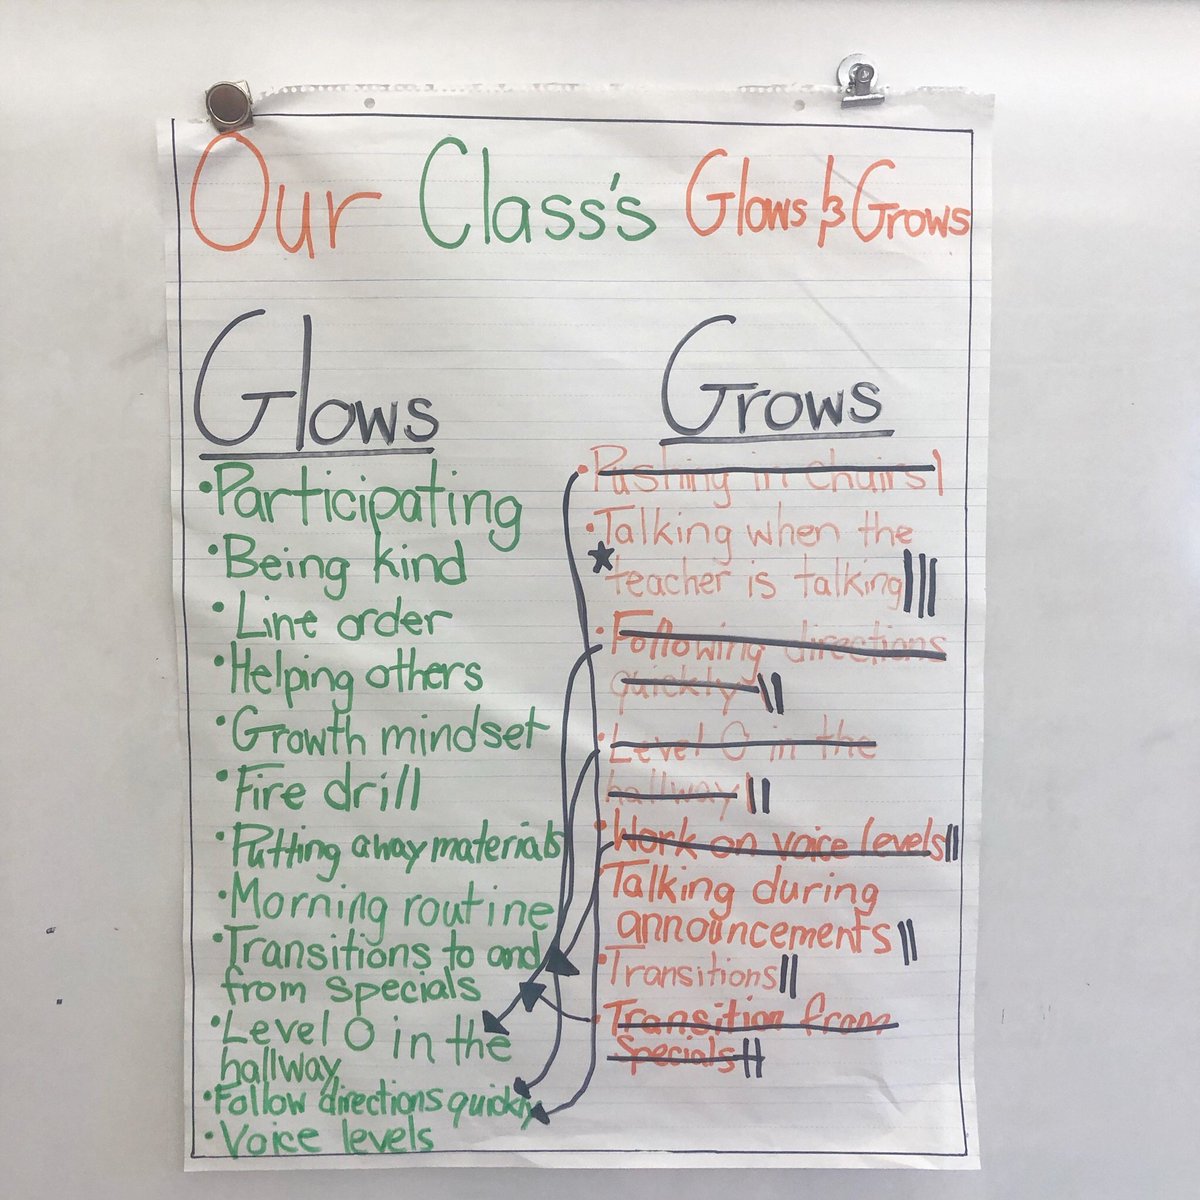 Our Class's Glows & Grows
Glows
• Participating
• Being kind
• Line order
• Helping others
• Growth mindset
• Fire drill
• Putting away materials
• Morning routine
• Transitions to and
from specials
• Level 0 in the
hallway
• Follow directions quickly
• Voice levels
Grows
• Pushing in chairs
• Talking when the
teacher is talking
• Following directions
quickly
• Level 0 in the
hallway
• Work on voice levels
Talking during
announcements
• Transitions
• Transition from
specials